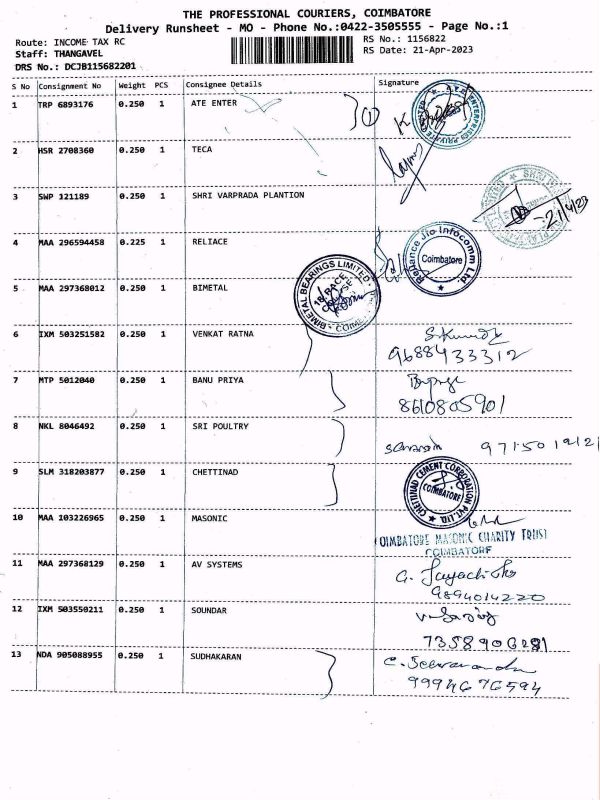 THE PROFESSIONAL COURIERS, COIMBATORE
Delivery Runsheet - MO - Phone No.:0422-3505555 - Page No.:1
Route: INCOME TAX RC
RS No.: 1156822
Staff: THANGAVEL
RS Date: 21-Apr-2023
DRS No.: DCJB115682201
S No Consignment No Weight PCS Consignee Details Signature
1 TRP 6893176 0.250 1 ATE ENTER 1
2 HSR 2708360 0.250 1 TECA
3 SWP 121189 0.250 1 SHRI VARPRADA PLANTION 21/4/23
4 MAA 296594458 0.225 1 RELIACE Reliance Jio Infocomm Ltd. Coimbatore
5 MAA 297368012 0.250 1 BIMETAL BIMETAL BEARINGS LIMITED
6 IXM 503251582 0.250 1 VENKAT RATNA
9688433312
7 MTP 5012040 0.250 1 BANU PRIYA
8610805901
8 NKL 8046492 0.250 1 SRI POULTRY
9 SLM 318203877 0.250 1 CHETTINAD CHETTINAD CEMENT CORPORATION PVT. LTD. COIMBATORE
10 MAA 103226965 0.250 1 MASONIC
OIMBATORE MASONIC CHARITY TRUST
COIMBATORE
11 MAA 297368129 0.250 1 AV SYSTEMS
9894014220
12 IXM 503550211 0.250 1 SOUNDAR
13 NDA 905088955 0.250 1 SUDHAKARAN
9994676594